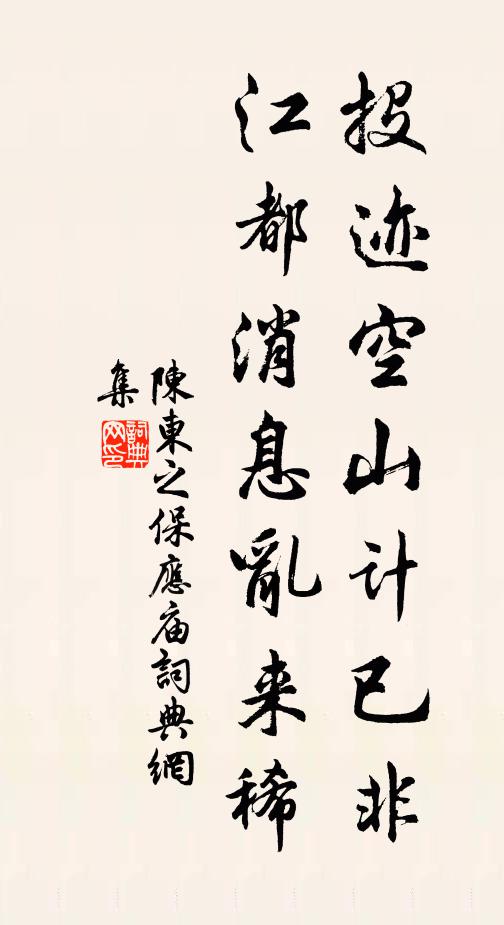 投迹空山计已非
江都消息亂来稀
陳東之保應庙詞典網
集
詞典
网印